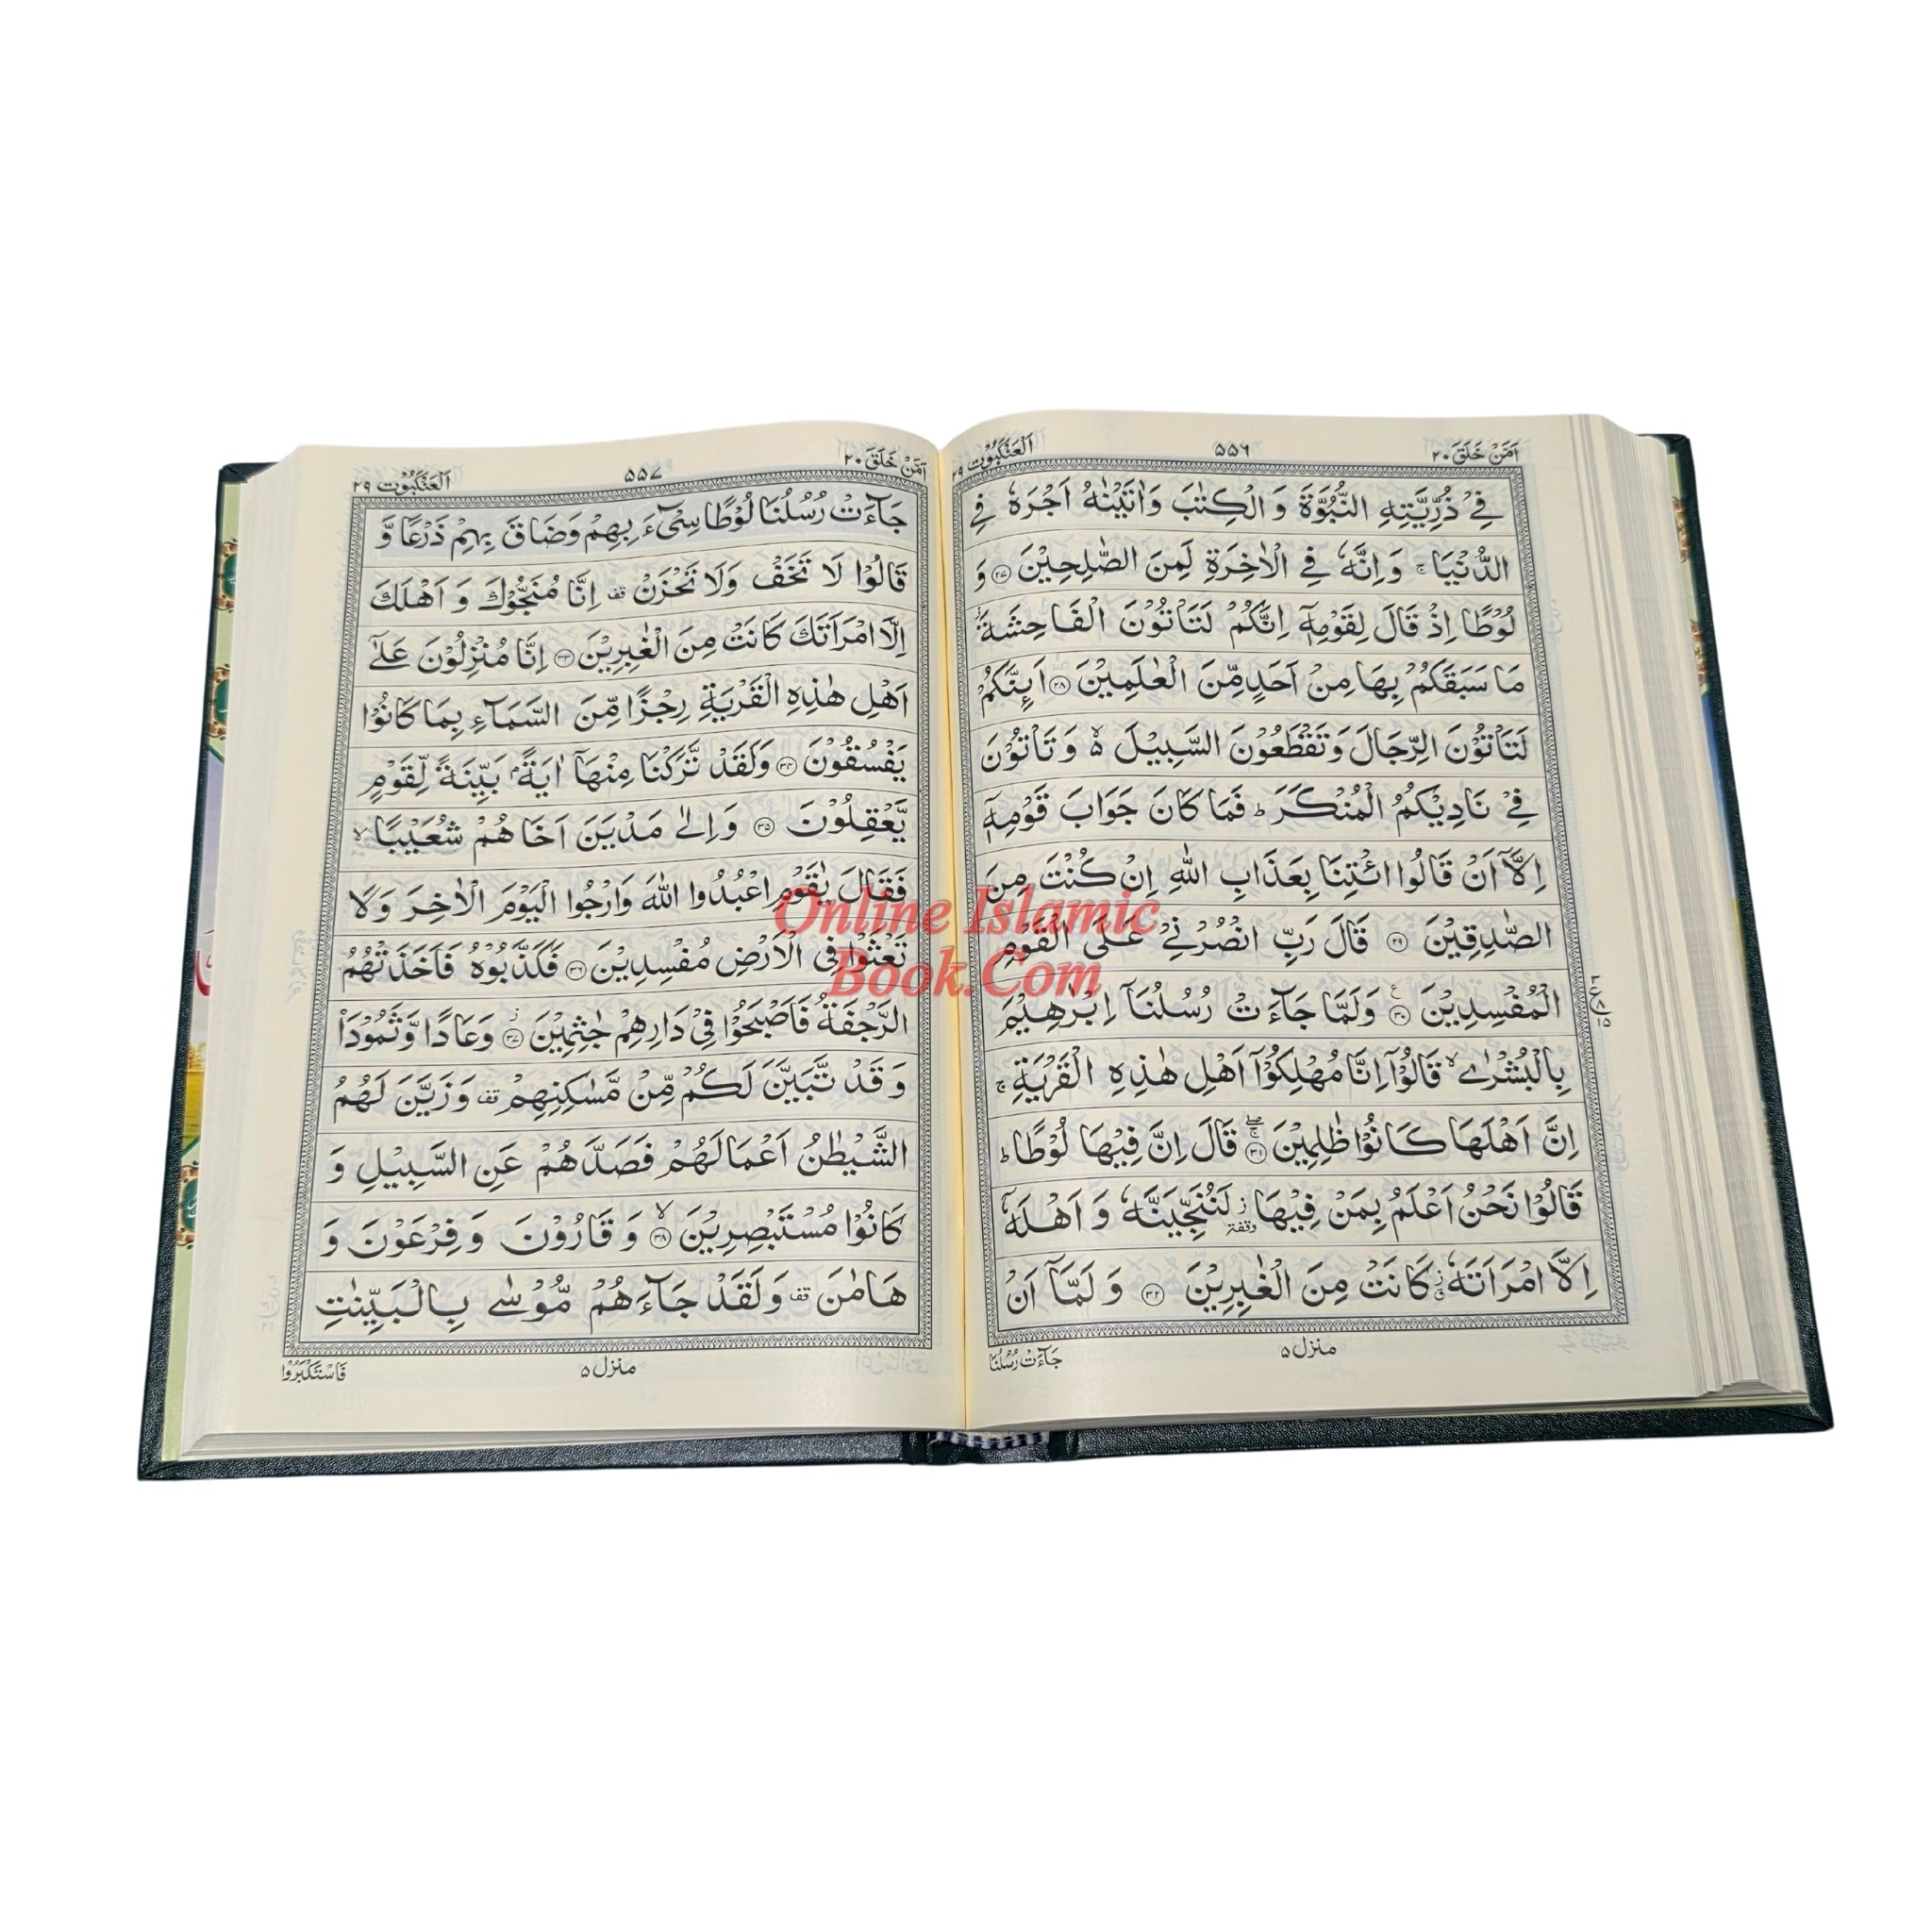 اَمَّنْ خَلَقَ ٢٠
٥٥٦
اَلْعَنْكَبُوْت ٢٩
فِیْ ذُرِّیَّتِهِ النُّبُوَّةَ وَ الْكِتٰبَ وَ اٰتَیْنٰهُ اَجْرَهٗ فِی
الدُّنْیَا ۚ وَ اِنَّهٗ فِی الْاٰخِرَةِ لَمِنَ الصّٰلِحِیْنَ ٢٧ وَ
لُوْطًا اِذْ قَالَ لِقَوْمِهٖۤ اِنَّكُمْ لَتَاْتُوْنَ الْفَاحِشَةَ ؗ
مَا سَبَقَكُمْ بِهَا مِنْ اَحَدٍ مِّنَ الْعٰلَمِیْنَ ٢٨ اَىِٕنَّكُمْ
لَتَاْتُوْنَ الرِّجَالَ وَ تَقْطَعُوْنَ السَّبِیْلَ ۙ۬ وَ تَاْتُوْنَ
فِیْ نَادِیْكُمُ الْمُنْكَرَ ؕ فَمَا كَانَ جَوَابَ قَوْمِهٖۤ
اِلَّاۤ اَنْ قَالُوا ائْتِنَا بِعَذَابِ اللّٰهِ اِنْ كُنْتَ مِنَ
الصّٰدِقِیْنَ ٢٩ قَالَ رَبِّ انْصُرْنِیْ عَلَی الْقَوْمِ
الْمُفْسِدِیْنَ ٣٠ وَ لَمَّا جَآءَتْ رُسُلُنَاۤ اِبْرٰهِیْمَ
بِالْبُشْرٰی ۙ قَالُوْۤا اِنَّا مُهْلِكُوْۤا اَهْلِ هٰذِهِ الْقَرْیَةِ ۚ
اِنَّ اَهْلَهَا كَانُوْا ظٰلِمِیْنَ ٣١ قَالَ اِنَّ فِیْهَا لُوْطًا ؕ
قَالُوْا نَحْنُ اَعْلَمُ بِمَنْ فِیْهَا ٘ وقفة لَنُنَجِّیَنَّهٗ وَ اَهْلَهٗۤ
اِلَّا امْرَاَتَهٗ كَانَتْ مِنَ الْغٰبِرِیْنَ ٣٢ وَ لَمَّاۤ اَنْ
منزل ٥
جَآءَتْ رُسُلُنَا
اَمَّنْ خَلَقَ ٢٠
٥٥٧
اَلْعَنْكَبُوْت ٢٩
جَآءَتْ رُسُلُنَا لُوْطًا سِیْٓءَ بِهِمْ وَ ضَاقَ بِهِمْ ذَرْعًا وَّ
قَالُوْا لَا تَخَفْ وَ لَا تَحْزَنْ قف اِنَّا مُنَجُّوْكَ وَ اَهْلَكَ
اِلَّا امْرَاَتَكَ كَانَتْ مِنَ الْغٰبِرِیْنَ ٣٣ اِنَّا مُنْزِلُوْنَ عَلٰۤی
اَهْلِ هٰذِهِ الْقَرْیَةِ رِجْزًا مِّنَ السَّمَآءِ بِمَا كَانُوْا
یَفْسُقُوْنَ ٣٤ وَ لَقَدْ تَّرَكْنَا مِنْهَاۤ اٰیَةًۢ بَیِّنَةً لِّقَوْمٍ
یَّعْقِلُوْنَ ٣٥ وَ اِلٰی مَدْیَنَ اَخَاهُمْ شُعَیْبًا ۙ
فَقَالَ یٰقَوْمِ اعْبُدُوا اللّٰهَ وَ ارْجُوا الْیَوْمَ الْاٰخِرَ وَ لَا
تَعْثَوْا فِی الْاَرْضِ مُفْسِدِیْنَ ٣٦ فَكَذَّبُوْهُ فَاَخَذَتْهُمُ
الرَّجْفَةُ فَاَصْبَحُوْا فِیْ دَارِهِمْ جٰثِمِیْنَ ٣٧ وَ عَادًا وَّ ثَمُوْدَاۡ
وَ قَدْ تَّبَیَّنَ لَكُمْ مِّنْ مَّسٰكِنِهِمْ قف وَ زَیَّنَ لَهُمُ
الشَّیْطٰنُ اَعْمَالَهُمْ فَصَدَّهُمْ عَنِ السَّبِیْلِ وَ
كَانُوْا مُسْتَبْصِرِیْنَ ٣٨ وَ قَارُوْنَ وَ فِرْعَوْنَ وَ
هَامٰنَ قف وَ لَقَدْ جَآءَهُمْ مُّوْسٰی بِالْبَیِّنٰتِ
منزل ٥
فَاسْتَكْبَرُوْا
Online Islamic
Book.Com